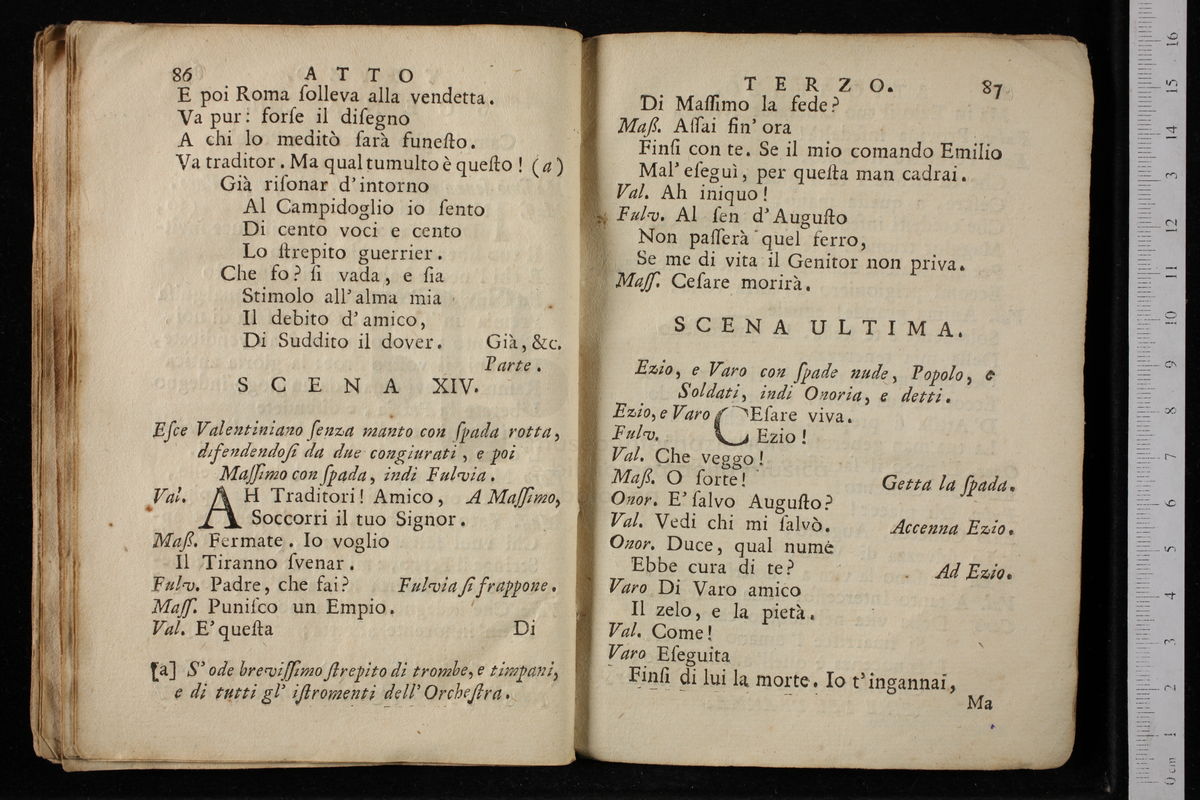 86 ATTO
E poi Roma ſolleva alla vendetta.
Va pur: forſe il diſegno
A chi lo meditò ſarà funeſto.
Va traditor. Ma qual tumulto è queſto! (a)
Già riſonar d'intorno
Al Campidoglio io ſento
Di cento voci e cento
Lo ſtrepito guerrier.
Che fo? ſi vada, e ſia
Stimolo all'alma mia
Il debito d'amico,
Di Suddito il dover. Già, &c.
Parte.
SCENA XIV.
Eſce Valentiniano ſenza manto con ſpada rotta,
difendendoſi da due congiurati, e poi
Maſſimo con ſpada, indi Fulvia.
Val. AH Traditori! Amico, A Maſſimo,
Soccorri il tuo Signor.
Maß. Fermate. Io voglio
Il Tiranno ſvenar.
Fulv. Padre, che fai? Fulvia ſi frappone.
Maſſ. Puniſco un Empio.
Val. E' queſta Di
[a] S'ode breviſſimo ſtrepito di trombe, e timpani,
e di tutti gl' iſtromenti dell'Orcheſtra.
TERZO. 87
Di Maſſimo la fede?
Maß. Aſſai fin' ora
Finſi con te. Se il mio comando Emilio
Mal' eſeguì, per queſta man cadrai.
Val. Ah iniquo!
Fulv. Al ſen d'Auguſto
Non paſſerà quel ferro,
Se me di vita il Genitor non priva.
Maſſ. Ceſare morirà.
SCENA ULTIMA.
Ezio, e Varo con ſpade nude, Popolo, e
Soldati, indi Onoria, e detti.
Ezio, e Varo CEſare viva.
Fulv. Ezio!
Val. Che veggo!
Maß. O ſorte! Getta la ſpada.
Onor. E' ſalvo Auguſto?
Val. Vedi chi mi ſalvò. Accenna Ezio.
Onor. Duce, qual nume
Ebbe cura di te? Ad Ezio.
Varo Di Varo amico
Il zelo, e la pietà.
Val. Come!
Varo Eſeguita
Finſi di lui la morte. Io t'ingannai,
Ma
0 cm 1 2 3 4 5 6 7 8 9 10 11 12 13 14 15 16